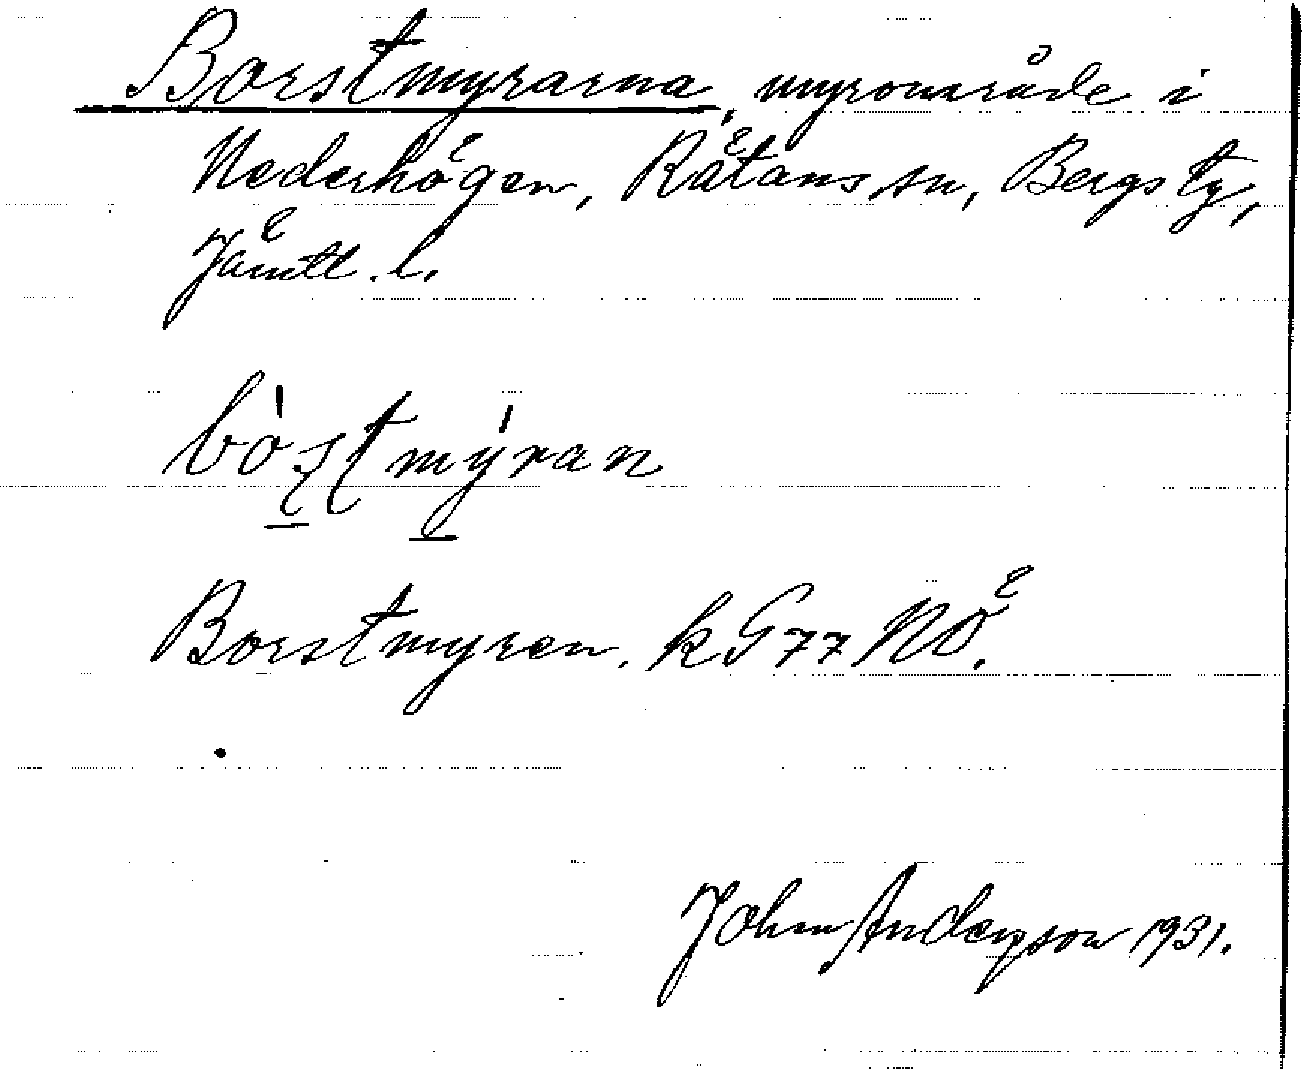 Borstmyrarna, myrområde i
Nederhögen, Rätans sn, Bergs tg,
Jämtl. l.
bòs̲t my̲ran
Borstmyren. k G 77 NÖ.
John Anderson 1931.